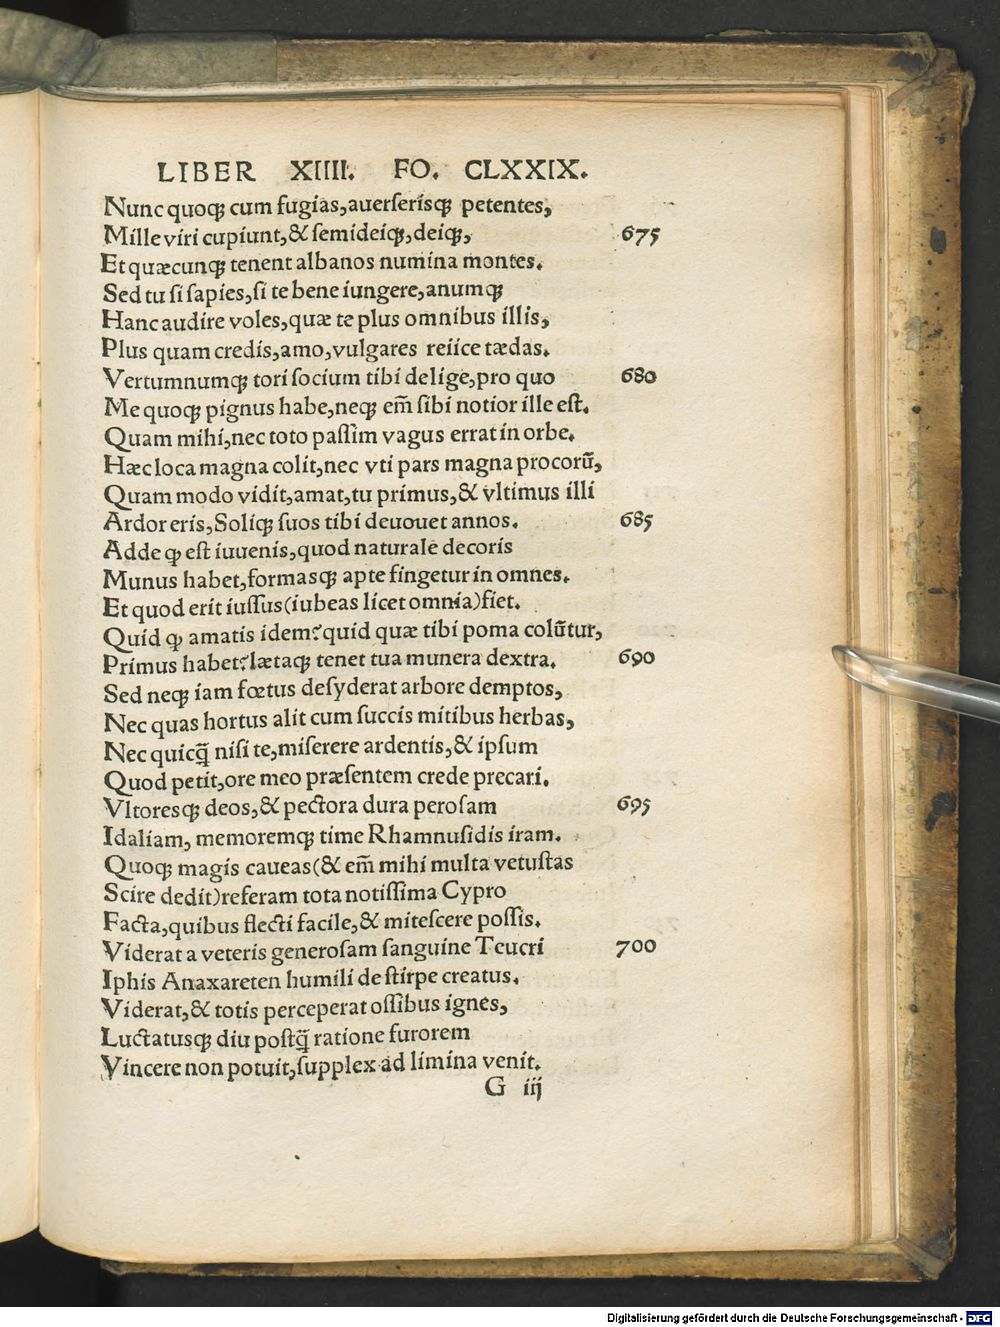 LIBER XIIII. FO. CLXXIX.
Nunc quoqꝫ cum fugias,auerſeriſqꝫ petentes,
Mille viri cupiunt,& ſemideiqꝫ,deiqꝫ, 675
Et quæcunqꝫ tenent albanos numina montes.
Sed tu ſi ſapies,ſi te bene iungere,anumqꝫ
Hanc audire voles,quæ te plus omnibus illis,
Plus quam credis,amo,vulgares reiice tædas.
Vertumnumqꝫ tori ſocium tibi delige,pro quo 680
Me quoqꝫ pignus habe,neqꝫ em̄ ſibi notior ille eſt.
Quam mihi,nec toto paſſim vagus errat in orbe.
Hæc loca magna colit,nec vti pars magna procorū,
Quam modo vidit,amat,tu primus,& vltimus illi
Ardor eris,Soliqꝫ ſuos tibi deuouet annos. 685
Adde ꝙ eſt iuuenis,quod naturale decoris
Munus habet,formaſqꝫ apte fingetur in omnes.
Et quod erit iuſſus(iubeas licet omnia)fiet.
Quid ꝙ amatis idem?quid quæ tibi poma colūtur,
Primus habet?lætaqꝫ tenet tua munera dextra. 690
Sed neqꝫ iam fœtus deſyderat arbore demptos,
Nec quas hortus alit cum ſuccis mitibus herbas,
Nec quicq̄ niſi te,miſerere ardentis,& ipſum
Quod petit,ore meo præſentem crede precari.
Vltoreſqꝫ deos,& pectora dura peroſam 695
Idaliam, memoremqꝫ time Rhamnuſidis iram.
Quoqꝫ magis caueas(& em̄ mihi multa vetuſtas
Scire dedit)referam tota notiſſima Cypro
Facta,quibus flecti facile,& miteſcere poſſis.
Viderat a veteris generoſam ſanguine Teucri 700
Iphis Anaxareten humili de ſtirpe creatus.
Viderat,& totis perceperat oſſibus ignes,
Luctatuſqꝫ diu poſtq̄ ratione furorem
Vincere non potuit,ſupplex ad limina venit.
G iij
Digitalisierung gefördert durch die Deutsche Forschungsgemeinschaft - DFG